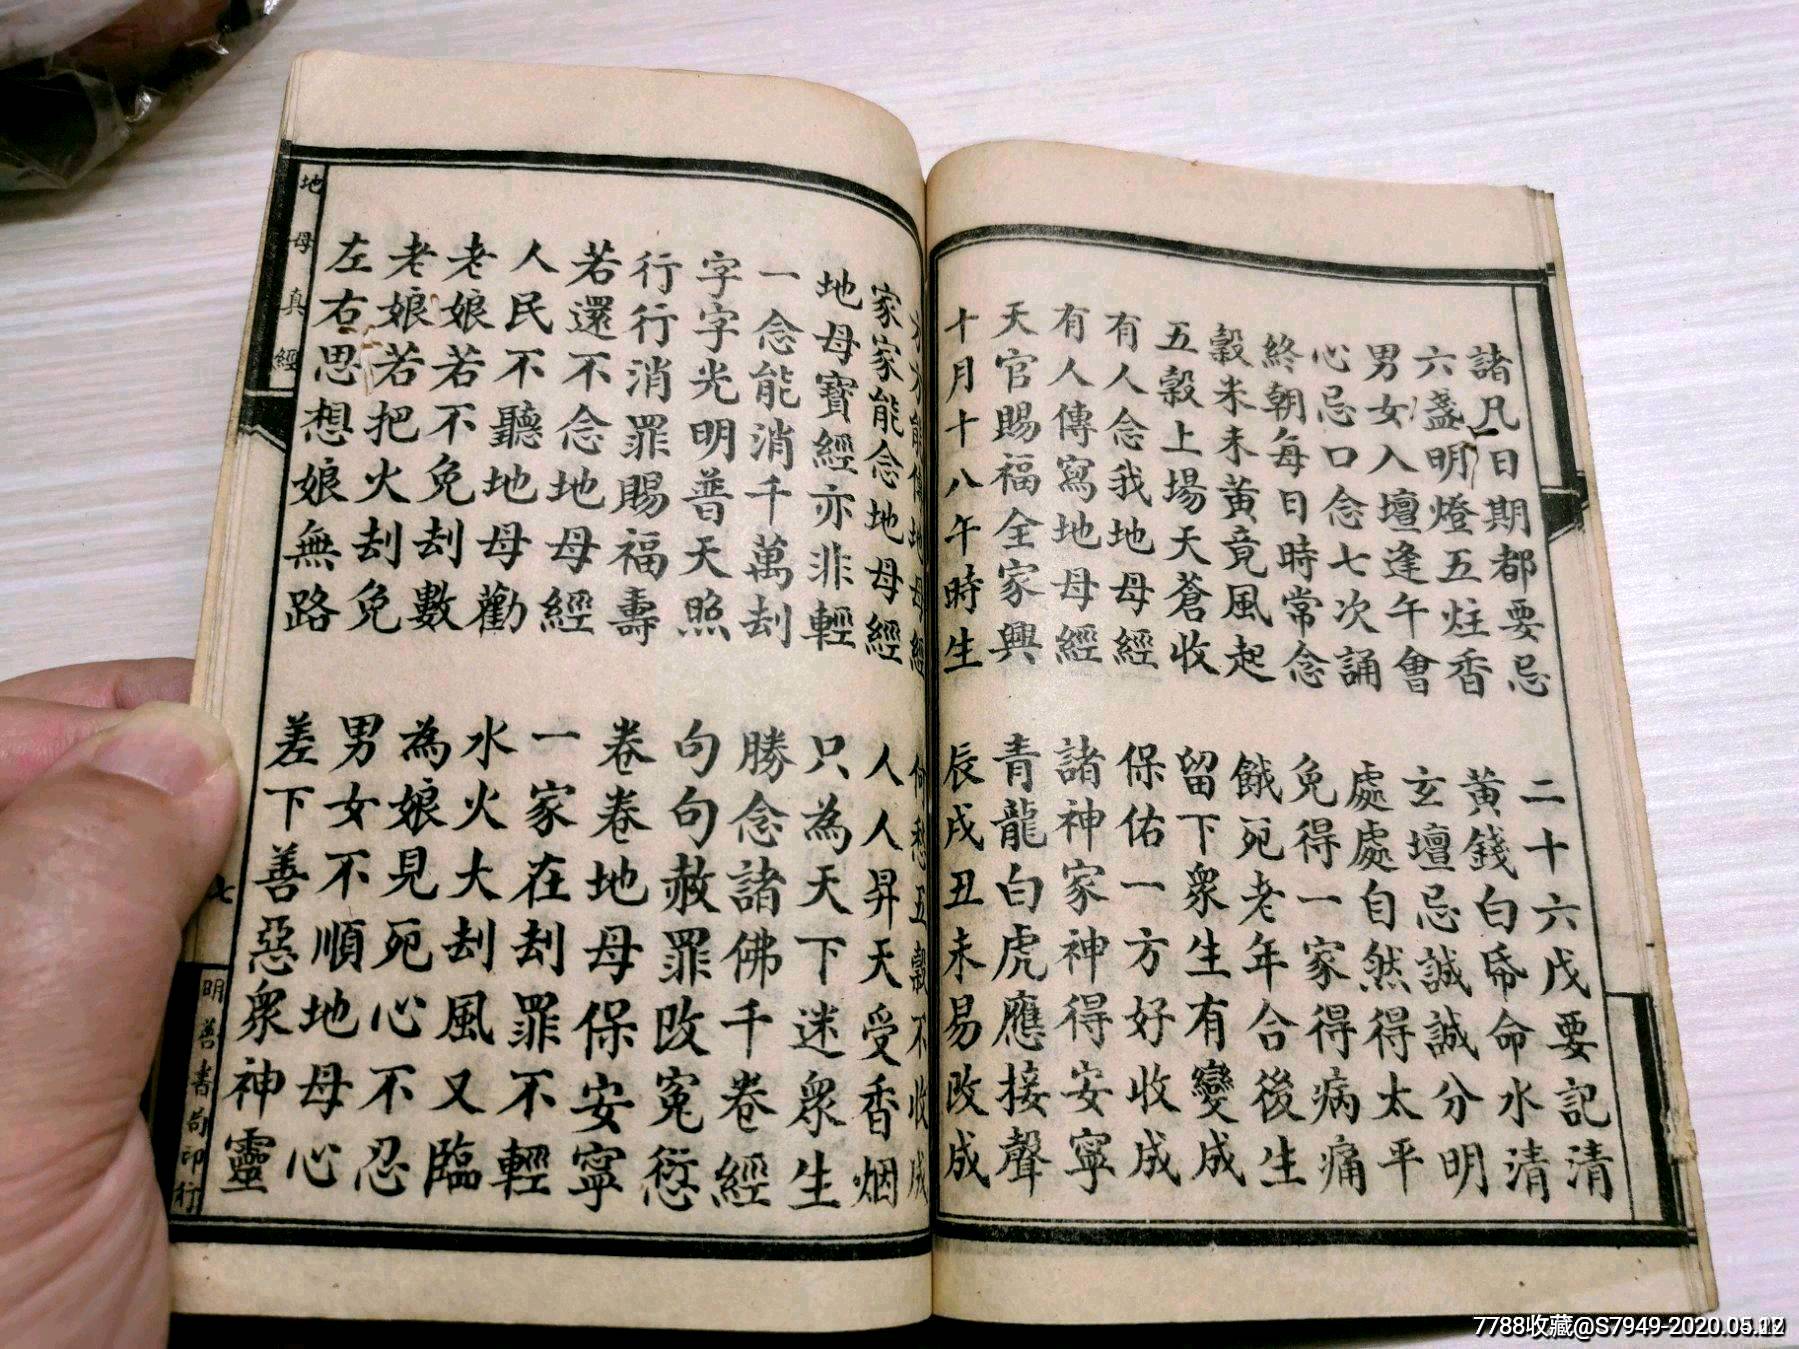 諸凡日期都要忌 二十六戊要記清
六盞明燈五炷香 黃錢白帋命水清
男女入壇逢午會 玄壇忌誠誠分明
心忌口念七次誦 處處自然得太平
終朝每日時常念 免得一家得病痛
穀米未黃竟風起 餓死老年合後生
五穀上場天蒼收 留下眾生有變成
有人念我地母經 保佑一方好收成
有人傳寫地母經 諸神家神得安寧
天官賜福全家興 青龍白虎應接聲
十月十八午時生 辰戌丑未易改成
能 地母經 何愁五穀不收成
家家能念地母經 人人昇天受香烟
地母寶經亦非輕 只為天下迷眾生
一念能消千萬刦 勝念諸佛千卷經
字字光明普天照 句句赦罪改冤愆
行行消罪賜福壽 卷卷地母保安寧
若還不念地母經 一家在刦罪不輕
人民不聽地母勸 水火大刦風又臨
老娘若不免刦數 為娘見死心不忍
老娘若把火刦免 男女不順地母心
左右思想娘無路 差下善惡眾神靈
地母真經 七 明善書局印行
7788收藏@S7949-2020.05.12